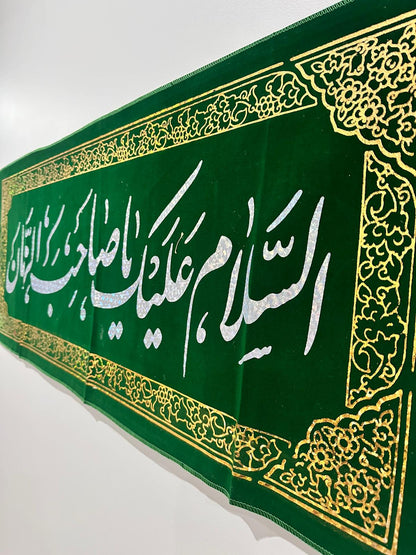 السَّلام عَلیکَ یا صاحِبَ الزَمان